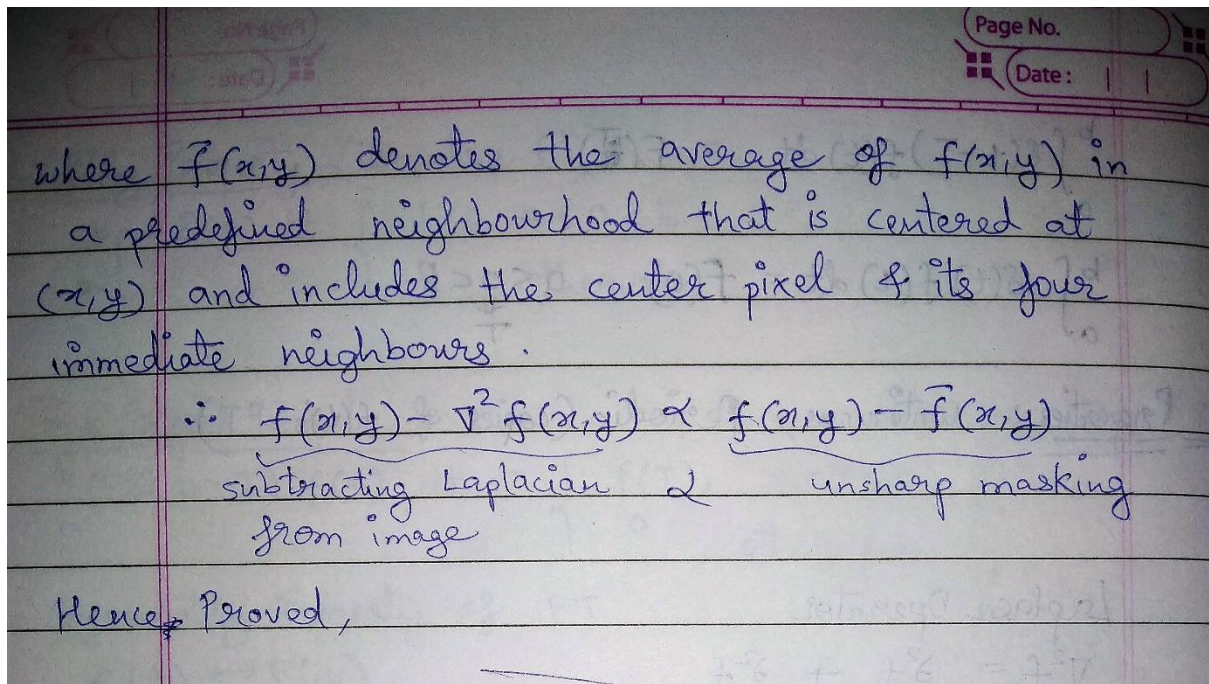 Page No.
Date :
where f̄(x,y) denotes the average of f(x,y) in
a predefined neighbourhood that is centered at
(x,y) and includes the center pixel & its four
immediate neighbours.
∴ f(x,y) - ∇²f(x,y) ∝ f(x,y) - f̄(x,y)
subtracting Laplacian ∝ unsharp masking
from image
Hence, Proved,